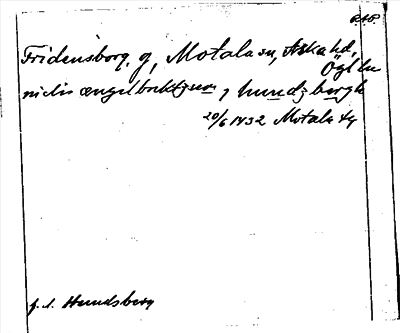 Fridensborg, g, Motala sn, Aska hd,
Ögl län
niclis ængelbrektzson, hundzbergh
20/6 1432 Motala
f. d. Hundsberg